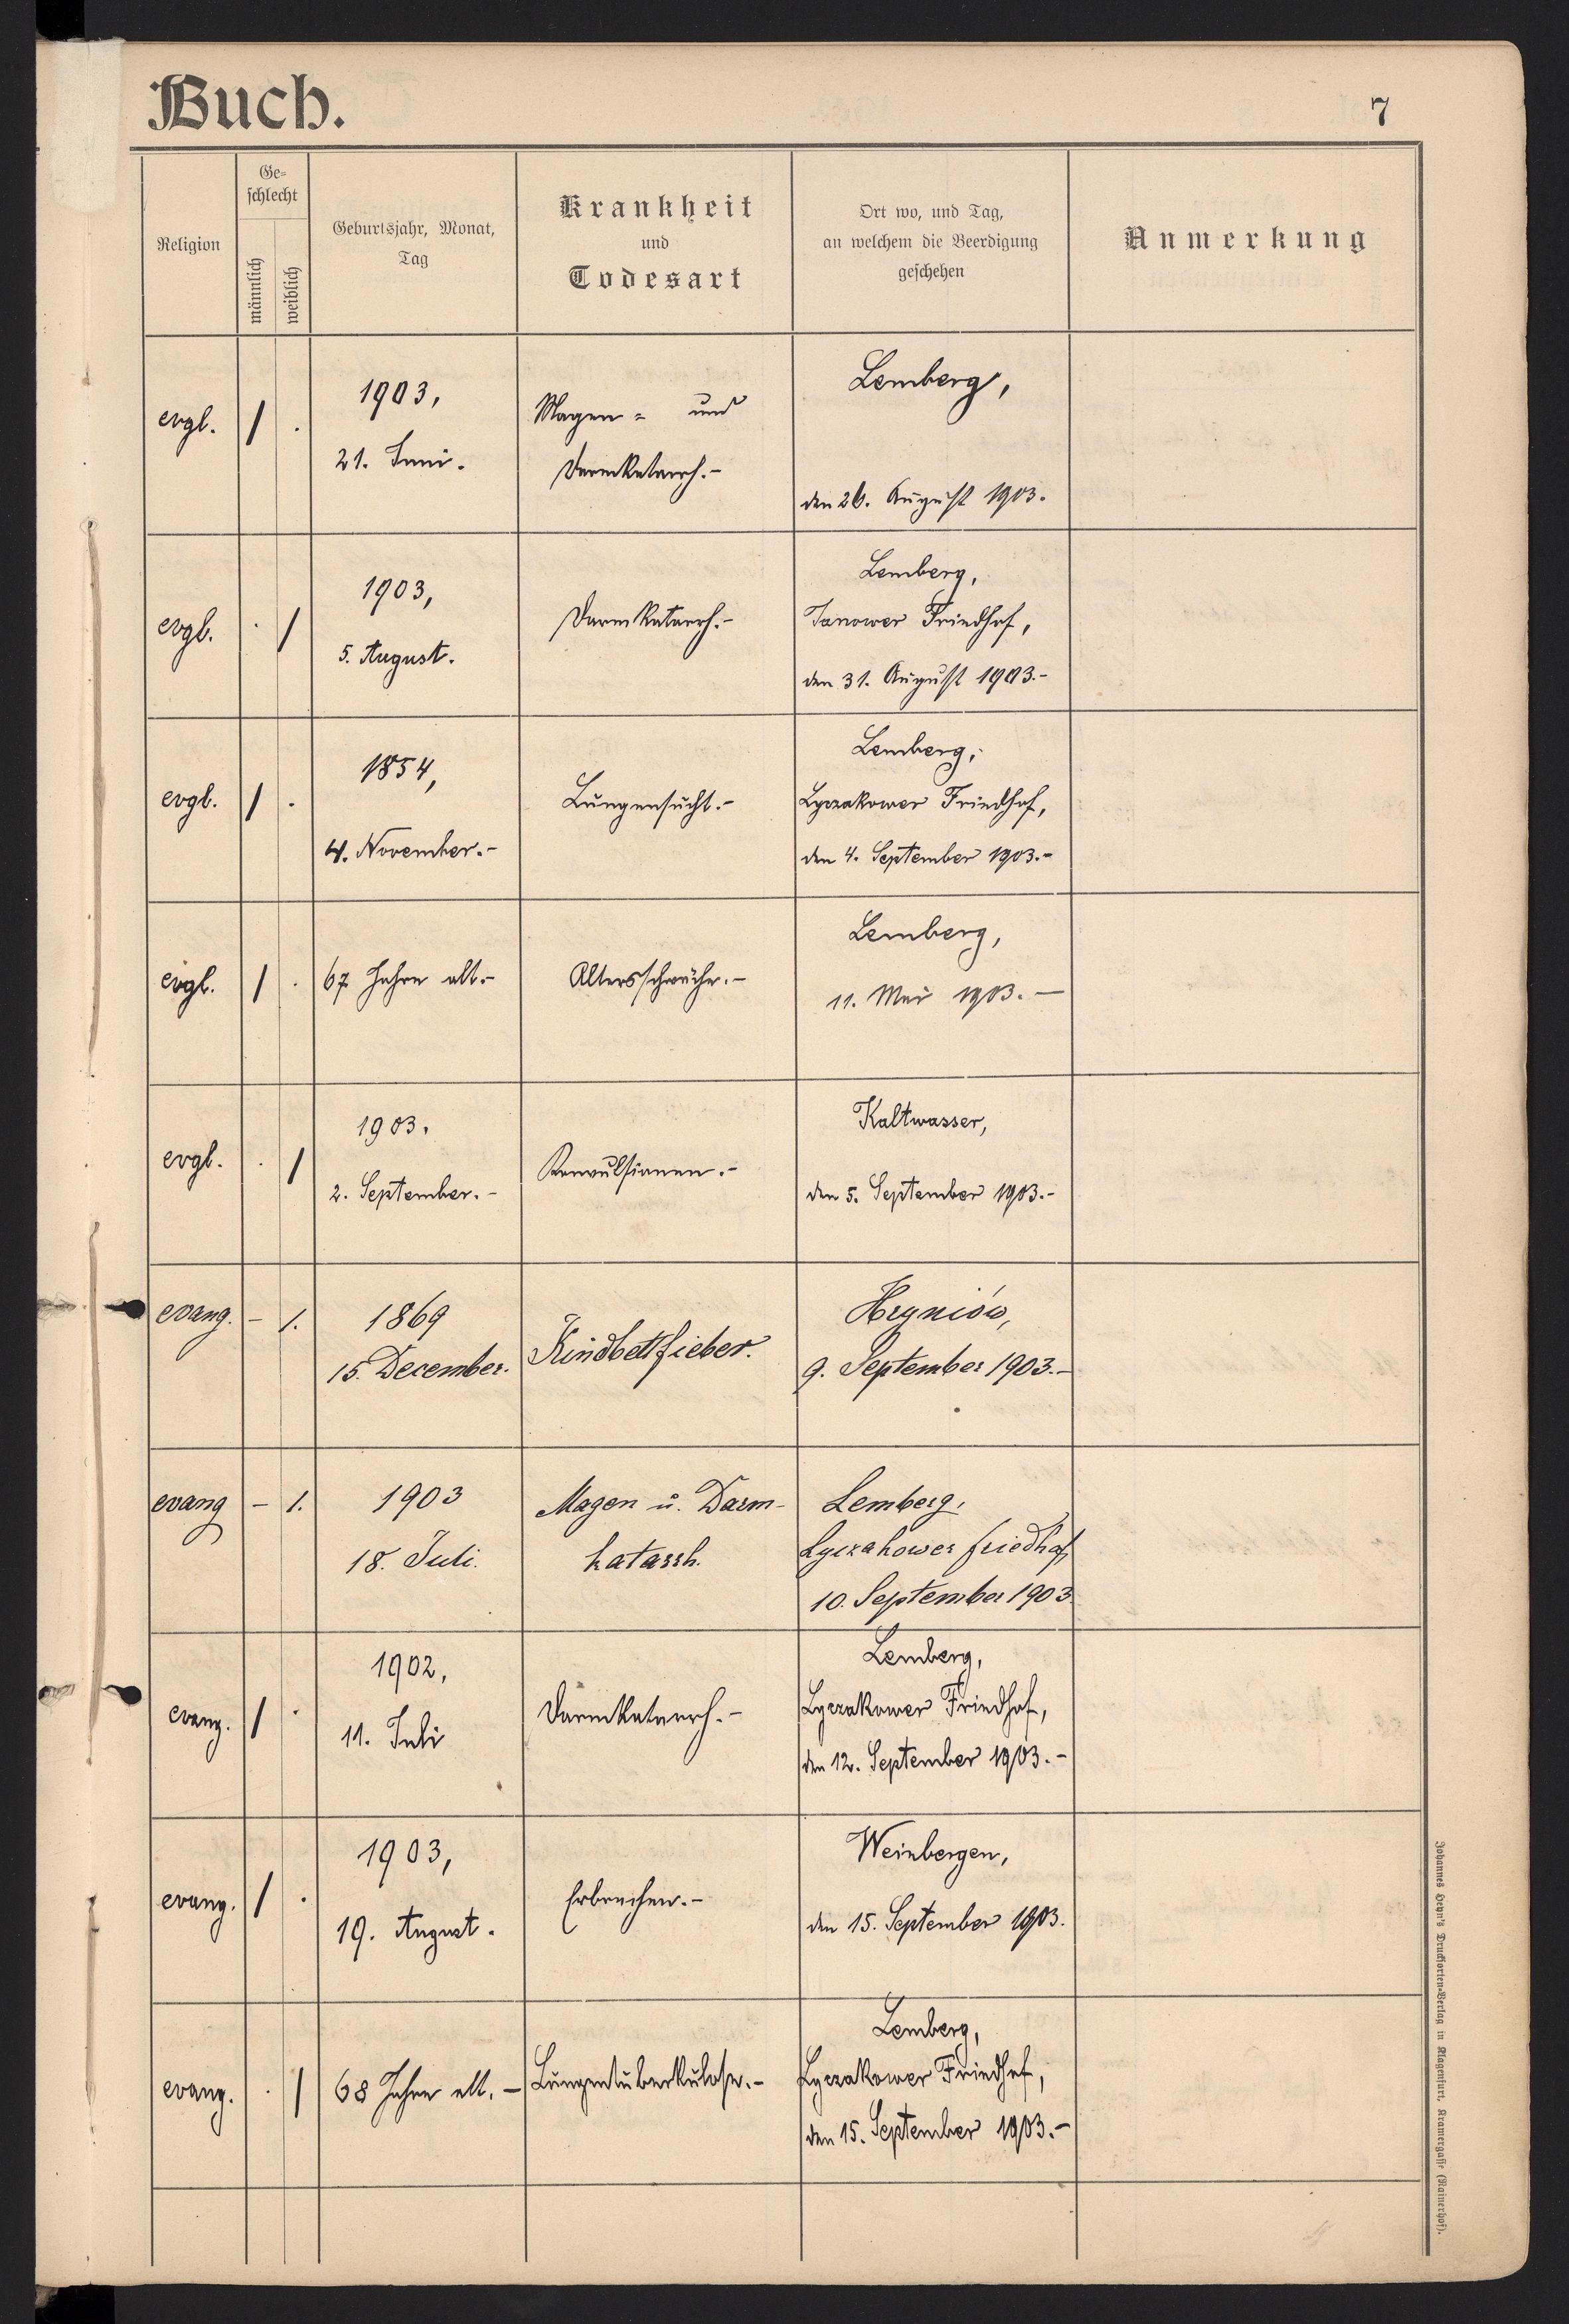 Buch.
7
Religion
Ge-
schlecht
männlich
weiblich
Geburtsjahr, Monat,
Tag
Krankheit
und
Todesart
Ort wo, und Tag,
an welchem die Beerdigung
geschehen
Anmerkung
evgl. 1 .
1903,
21. Juni.
Magen- und
Darmkatarrh.-
Lemberg,
den 26. August 1903.
evgl. . 1
1903,
5. August.
Darmkatarrh.-
Lemberg,
Janower Friedhof,
den 31. August 1903.-
evgl. 1 .
1854,
4. November.-
Lungensucht.-
Lemberg,
Lyczakower Friedhof,
den 4. September 1903.-
evgl. 1 .
67 Jahre alt.-
Altersschwäche.-
Lemberg,
11. Mai 1903.-
evgl. . 1
1903.
2. September.-
Konvulsionen.-
Kaltwasser,
den 5. September 1903.-
evang. - 1.
1869
15. December.
Kindbettfieber.
Hryniów,
9. September 1903.-
evang - 1.
1903
18. Juli.
Magen u. Darm-
katarrh.
Lemberg,
Lyczakower Friedhof,
10. September 1903
evang. 1 .
1902,
11. Juli
Darmkatarrh.-
Lemberg,
Lyczakower Friedhof,
den 12. September 1903.-
evang. 1 .
1903,
19. August.
Erbrechen.-
Weinbergen,
den 15. September 1903.
evang. . 1
68 Jahre alt.-
Lungentuberkulose.-
Lemberg,
Lyczakower Friedhof,
den 15. September 1903.-
Johannes Heyn's Drucksorten-Verlag in Klagenfurt, Kramergasse (Rainerhof).